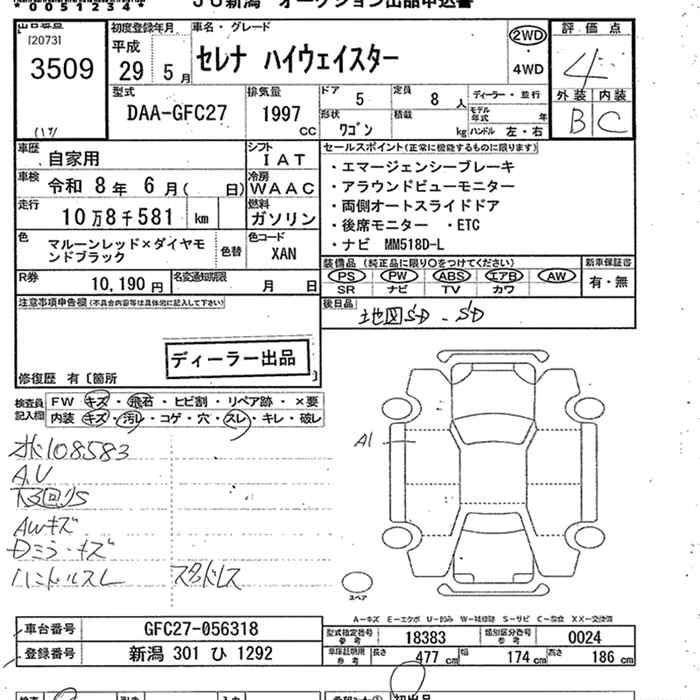 *0051234*
JU新潟 オークション出品申込書
120731
3509
初度登録年月
平成
29年 5月
車名・グレード
セレナ ハイウェイスター
2WD
・
4WD
評価点
4
外装 内装
B C
型式
DAA-GFC27
排気量
1997
CC
ドア 5
定員 8 人
形状 ワゴン
積載 kg
ディーラー・並行
モデル年式 年
ハンドル 左・右
車歴
自家用
シフト
IAT
車検
令和 8年 6月( 日)
冷房
WAAC
走行
10万8千581 km
燃料
ガソリン
色
マルーンレッド×ダイヤモンドブラック
色替
色コード
XAN
R券
10,190 円
名変通知期限
月 日
セールスポイント(正常に機能するものに限ります)
・エマージェンシーブレーキ
・アラウンドビューモニター
・両側オートスライドドア
・後席モニター ・ETC
・ナビ MM518D-L
装備品(純正品に限り○をつけてください)
PS・PW・ABS・エアB・AW
SR ナビ TV カワ
新車保証書
有・無
後日品
地図SD・SD
注意事項申告欄(不具合内容等は具体的に記入して下さい)
ディーラー出品
修復歴 有〔箇所 〕
検査員記入欄
FW キズ・飛石・ヒビ割・リペア跡・×要
内装 キズ・汚れ・コゲ・穴・スレ・キレ・破レ
108583
A.U
AWキズ
Dミラーキズ
ハンドルスレ
A1
スペア
A-キズ E-エクボ U-凹み W-補修跡 S-サビ C-腐食 XX-交換済
車台番号
GFC27-056318
登録番号
新潟 301 ひ 1292
型式指定番号
参考
18383
類別区分番号
参考
0024
車庫証明用
参考
長さ 477 cm
幅 174 cm
高さ 186 cm